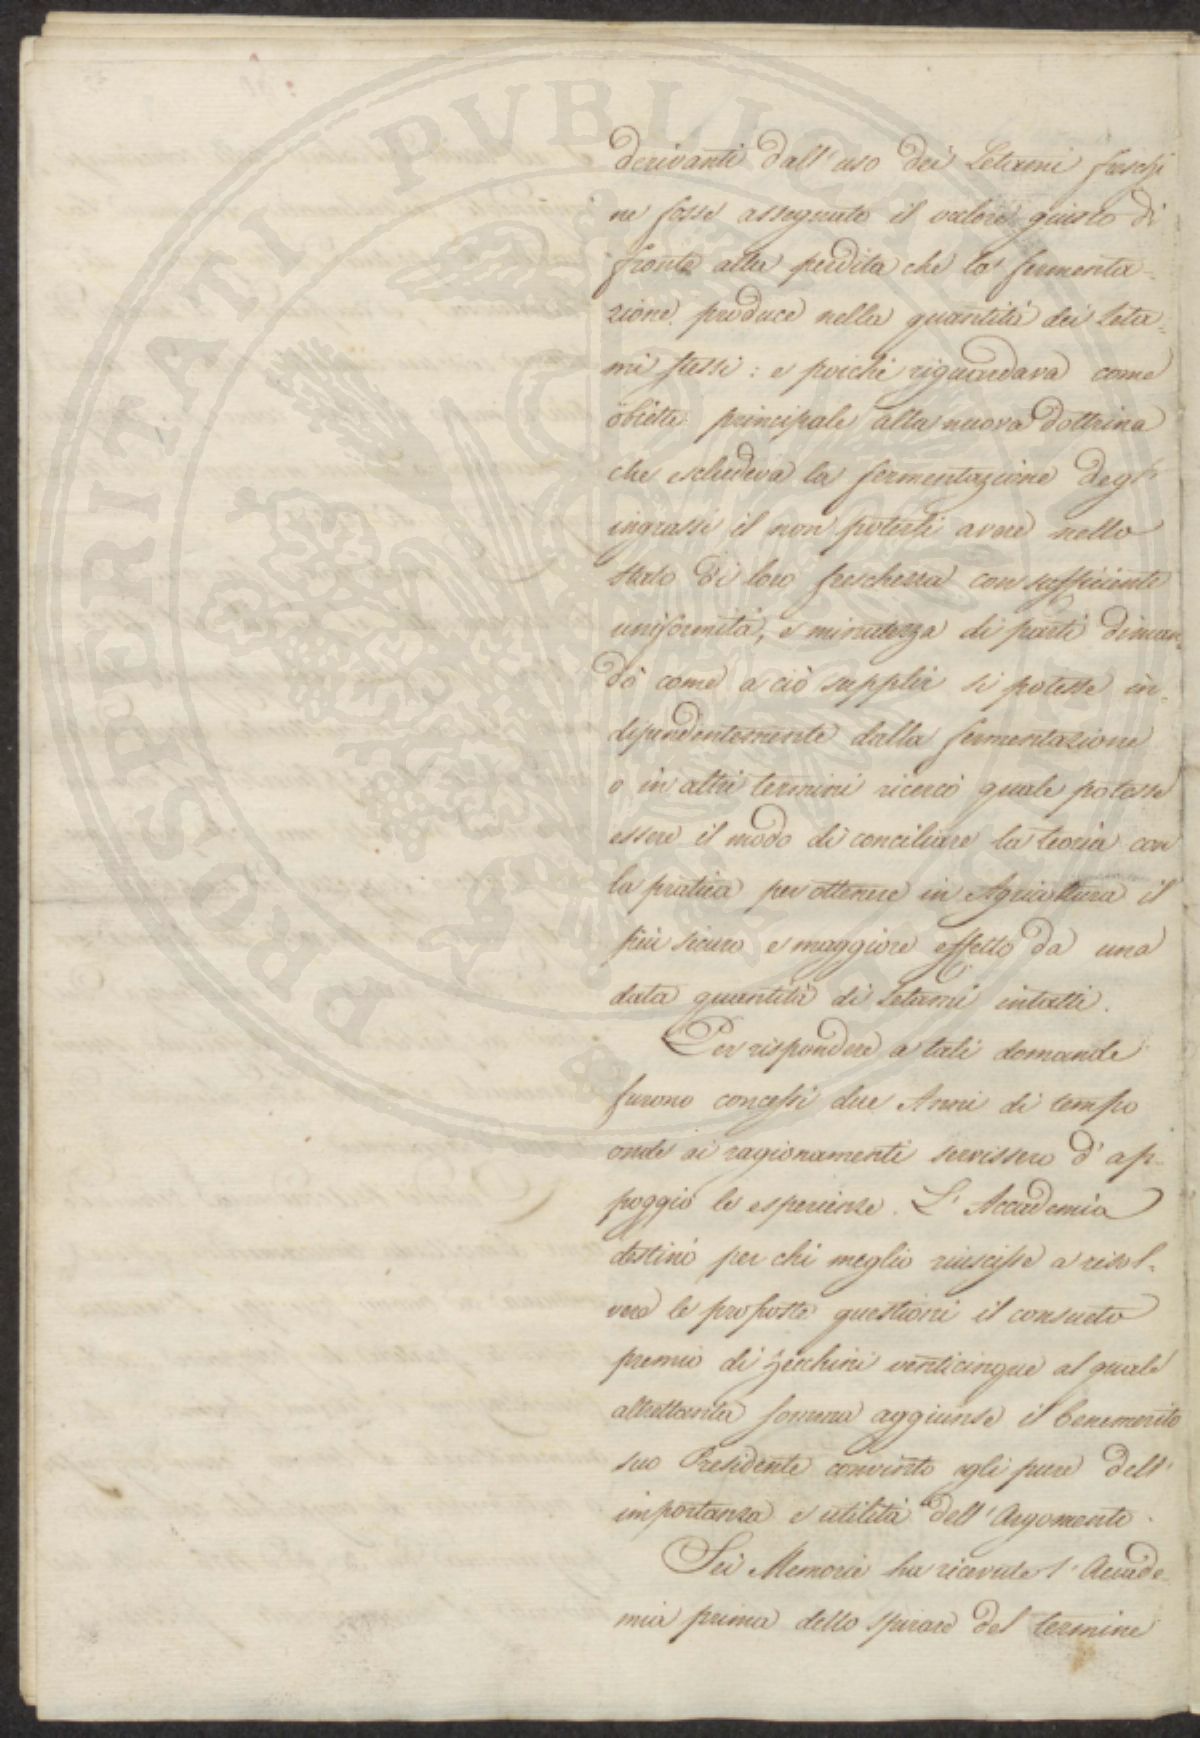 derivanti dall'uso dei Letami freschi
ne fosse assegnato il valore giusto di
fronte alla perdita che la fermenta-
zione produce nella quantità dei Leta-
mi stessi: e poichè riguardava come
obietto principale alla nuova dottrina
che escludeva la fermentazione degl'
ingrassi il non potersi avere nello
stato di loro freschezza con sufficiente
uniformità, e minutezza di parti diman-
dò come a ciò supplir si potesse in-
dipendentemente dalla fermentazione
o in altri termini ricercò quale potesse
essere il modo di conciliare la teoria con
la pratica per ottenere in Agricoltura il
più sicuro e maggiore effetto da una
data quantità di Letami intatti.
Per rispondere a tali domande
furono concessi due Anni di tempo
onde ai ragionamenti servissero d'ap-
poggio le esperienze. L'Accademia
destinò per chi meglio riuscisse a risol-
vere le proposte questioni il consueto
premio di Zecchini venticinque al quale
altrettanta somma aggiunse il benemerito
suo Presidente convinto egli pure dell'
importanza e utilità dell'Argomento.
Sei Memorie ha ricevute l'Accade-
mia prima dello spirare del termine
PROSPERITATI PUBLICAE